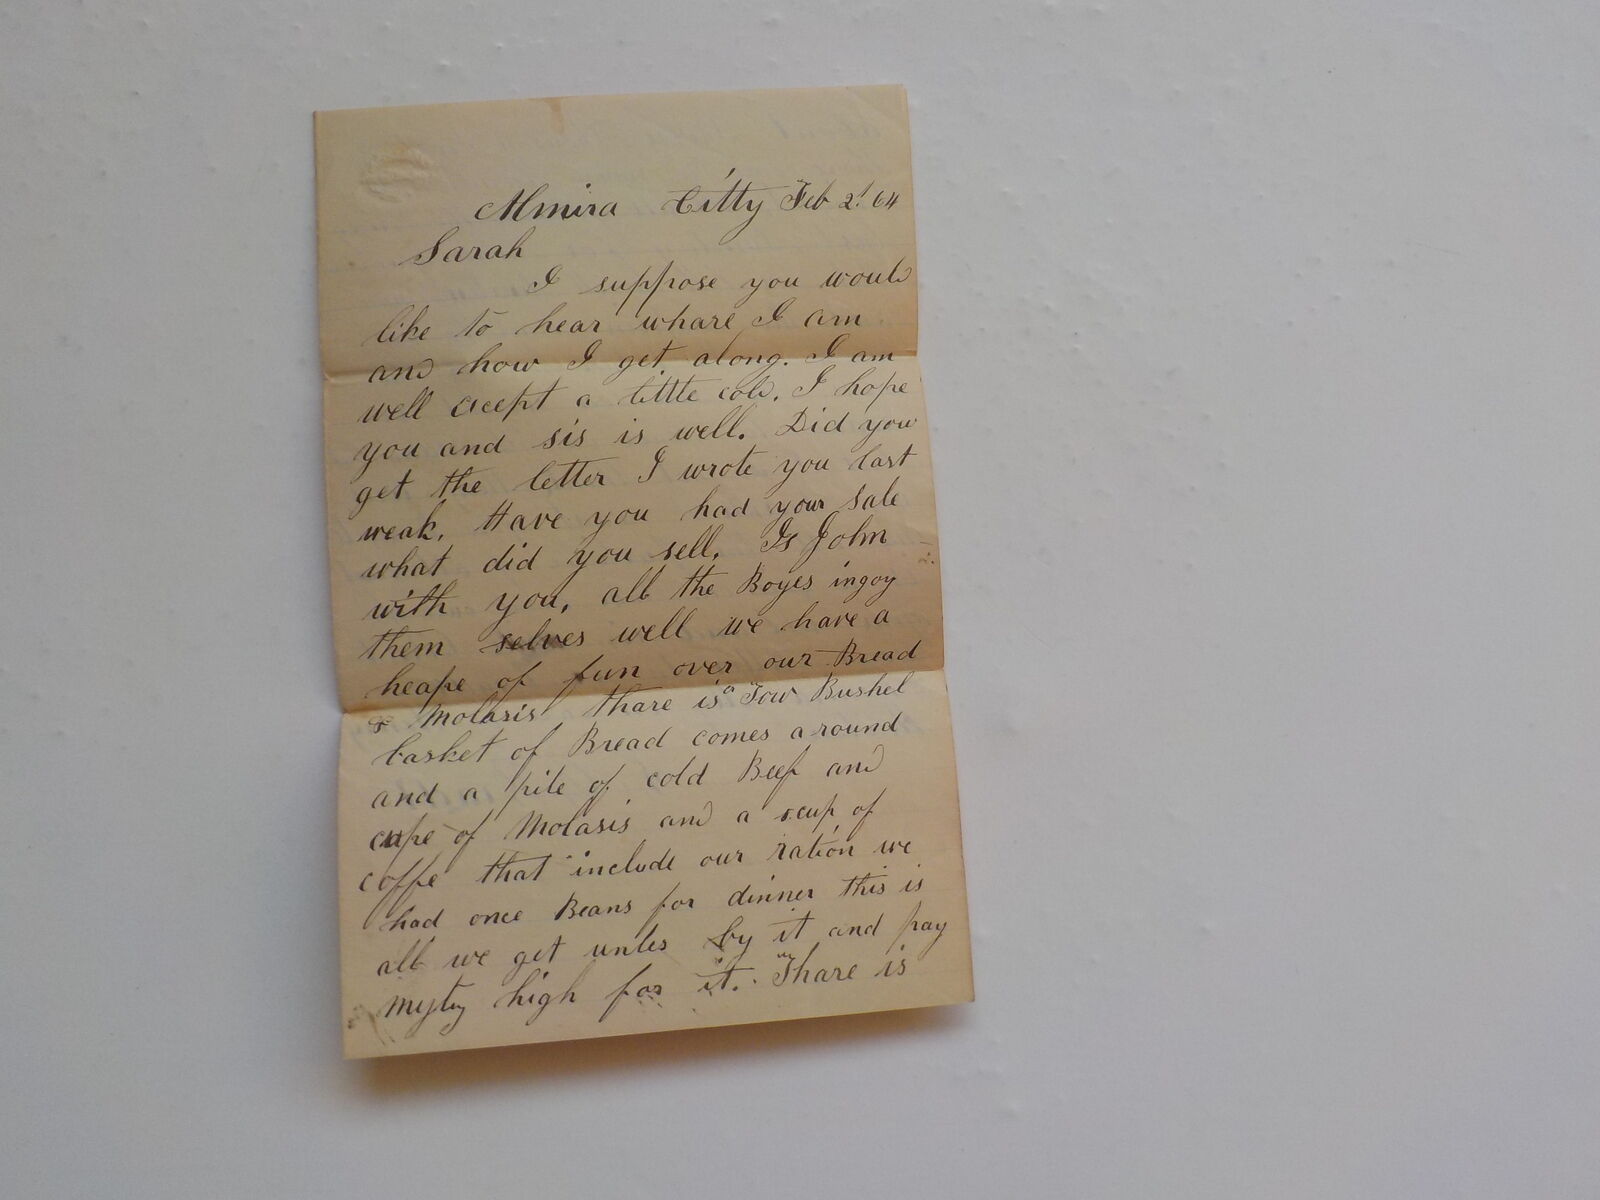 Almira Citty Feb 2d 64
Sarah
I suppose you would
like to hear whare I am
and how I get along. I am
well except a little cold. I hope
you and sis is well. Did you
get the letter I wrote you last
weak. Have you had your sale
what did you sell. Is John
with you, all the Boyes ingoy
them selves well we have a
heape of fun over our Bread
& Molasis thare is a Tow Bushel
basket of Bread comes around
and a pile of cold Beef and
cupe of Molasis and a cup of
coffe that include our ration we
had once Beans for dinner this is
all we get unles by it and pay
myty high for it. Thare is